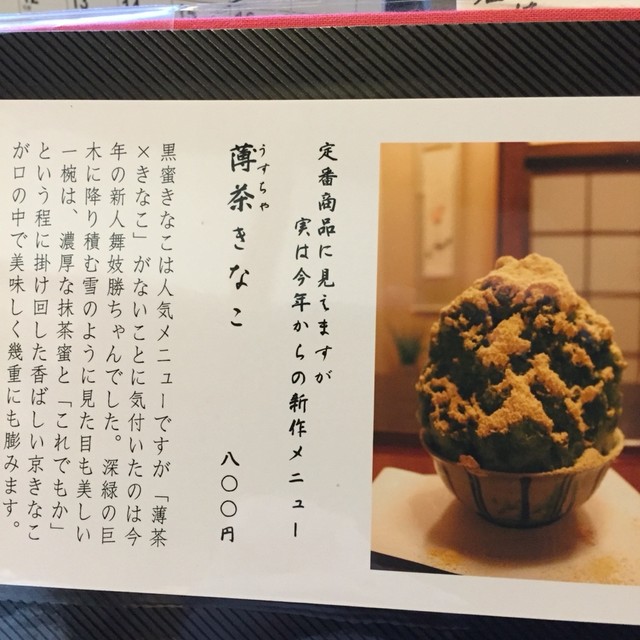 定番商品に見えますが
実は今年からの新作メニュー
うすちゃ
薄茶きなこ
八〇〇円
黒蜜きなこは人気メニューですが「薄茶
×きなこ」がないことに気付いたのは今
年の新人舞妓勝ちゃんでした。深緑の巨
木に降り積む雪のように見た目も美しい
一椀は、濃厚な抹茶蜜と「これでもか」
という程に掛け回した香ばしい京きなこ
が口の中で美味しく幾重にも膨みます。